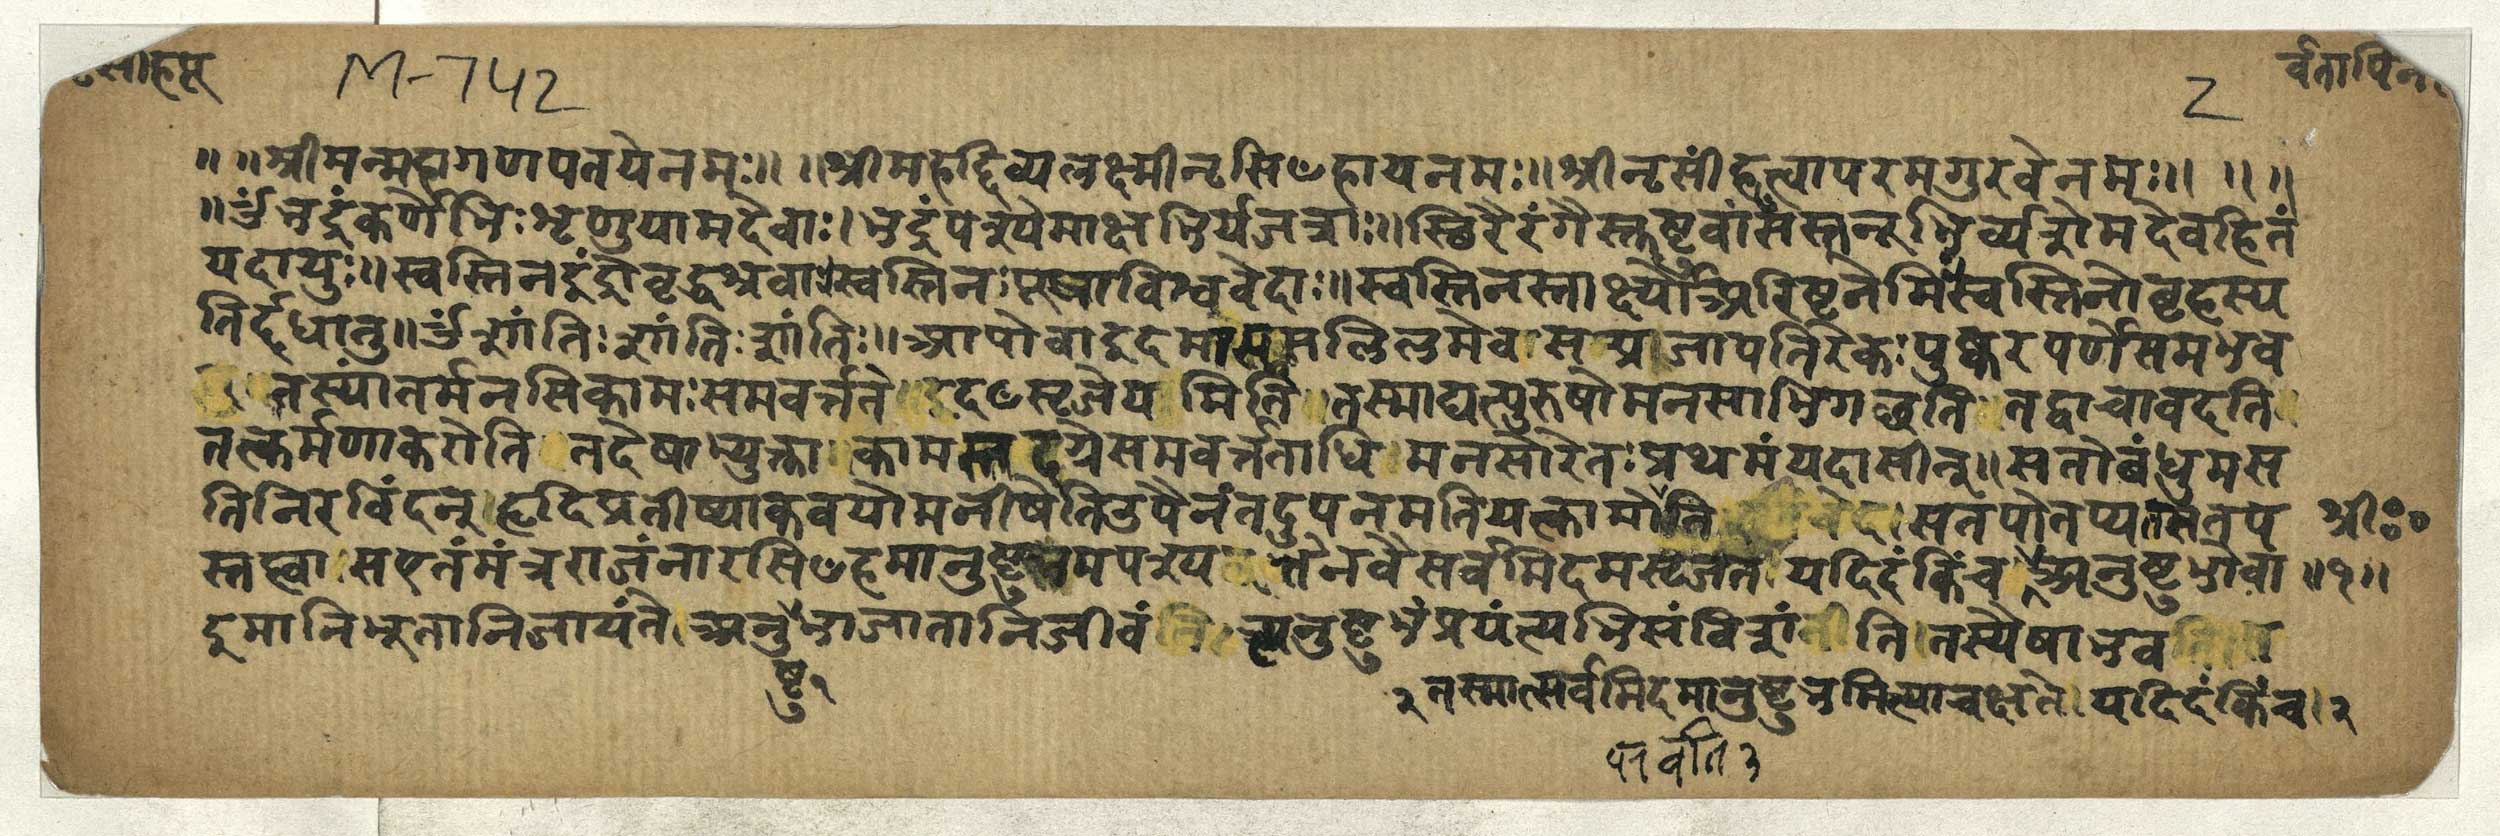 नृसींहपू
M-742
2
र्वतापिन
॥ ॥श्रीमन्महागणपतयेनमः॥ ॥श्रीमहद्दिव्यलक्ष्मीनृसिꣳहायनमः॥श्रीनृसींहत्वापरमगुरवेनमः॥ ॥ ॥
॥ॐभद्रंकर्णेभिःशृणुयामदेवाः।भद्रंपश्येमाक्षभिर्यजत्राः॥स्थिरैरंगैस्तुष्टुवांसंस्तनूभिर्व्यशेमदेवहितं
यदायुः॥स्वस्तिनइंद्रोवृद्धश्रवाःस्वस्तिनःपूषाविश्ववेदाः॥स्वस्तिनस्तार्क्ष्योअरिष्टनेमिःस्वस्तिनोबृहस्प
तिर्द्दधातु॥ॐशांतिःशांतिःशांतिः॥आपोवाइदमासन्सलिलमेव सप्रजापतिरेकःपुष्करपर्णेसमभव
तस्यांतर्मनसिकामःसमवर्त्तते इदꣳसृजेयमिति।तस्माद्यत्पुरुषोमनसाभिगछति तद्वाचावदति
तत्कर्मणाकरोति तदेषाभ्युक्ता कामस्तदग्रेसमवर्त्तताधि मनसोरेतःप्रथमंयदासीत्॥सतोबंधुमस
तिनिरविंदन्।हृदिप्रतीष्याकवयोमनीषेतिउपैनंतदुपनमतियत्कामोभवति वेद।सतपोतप्यतसतप
स्तप्त्वा।सएतंमंत्रराजंनारसिꣳहमानुष्टुभमपश्यत् तेनवैसर्वमिदमसृजत यदिदंकिंच अनुष्टुभोवा
श्रीः
॥१॥
इमानिभूतानिजायंते।अनुभाजातानिजीवंति अनुष्टुभंप्रयंत्यभिसंविशंतीति।तस्यैषाभवति
ष्टु१
२तस्मात्सर्वमिदमानुष्टुभमित्याचक्षते।यदिदंकिंच।२
पर्वति३